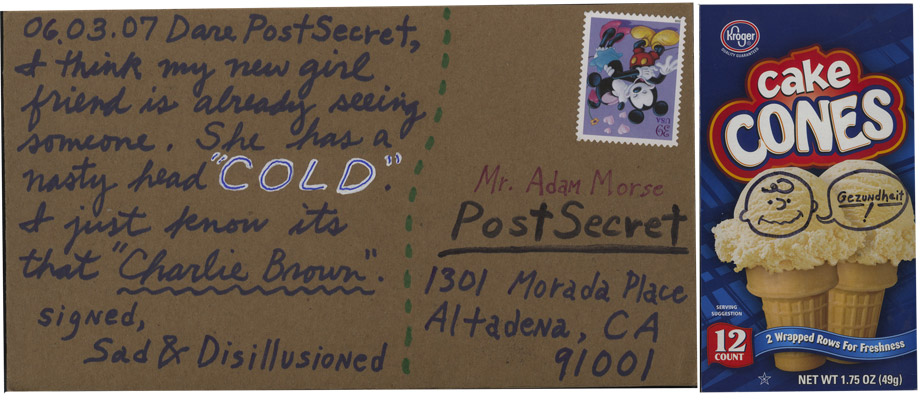 06.03.07 Dare PostSecret,
I think my new girl
friend is already seeing
someone. She has a
nasty head "COLD".
I just know its
that "Charlie Brown".
signed,
Sad & Disillusioned
USA
39
Mr. Adam Morse
PostSecret
1301 Morada Place
Altadena, CA
91001
Kroger
QUALITY GUARANTEED
cake
CONES
Gezundheit
!
SERVING
SUGGESTION
12
COUNT
2 Wrapped Rows For Freshness
NET WT 1.75 OZ (49g)